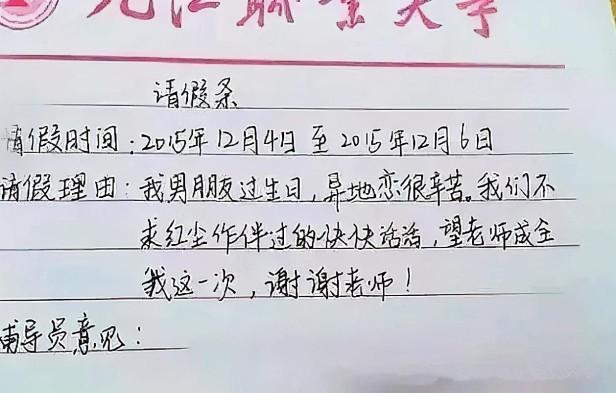 九江职业大学
请假条
请假时间:2015年12月4日至2015年12月6日
请假理由:我男朋友过生日,异地恋很辛苦。我们不
求红尘作伴过的快快活活,望老师成全
我这一次,谢谢老师!
辅导员意见: